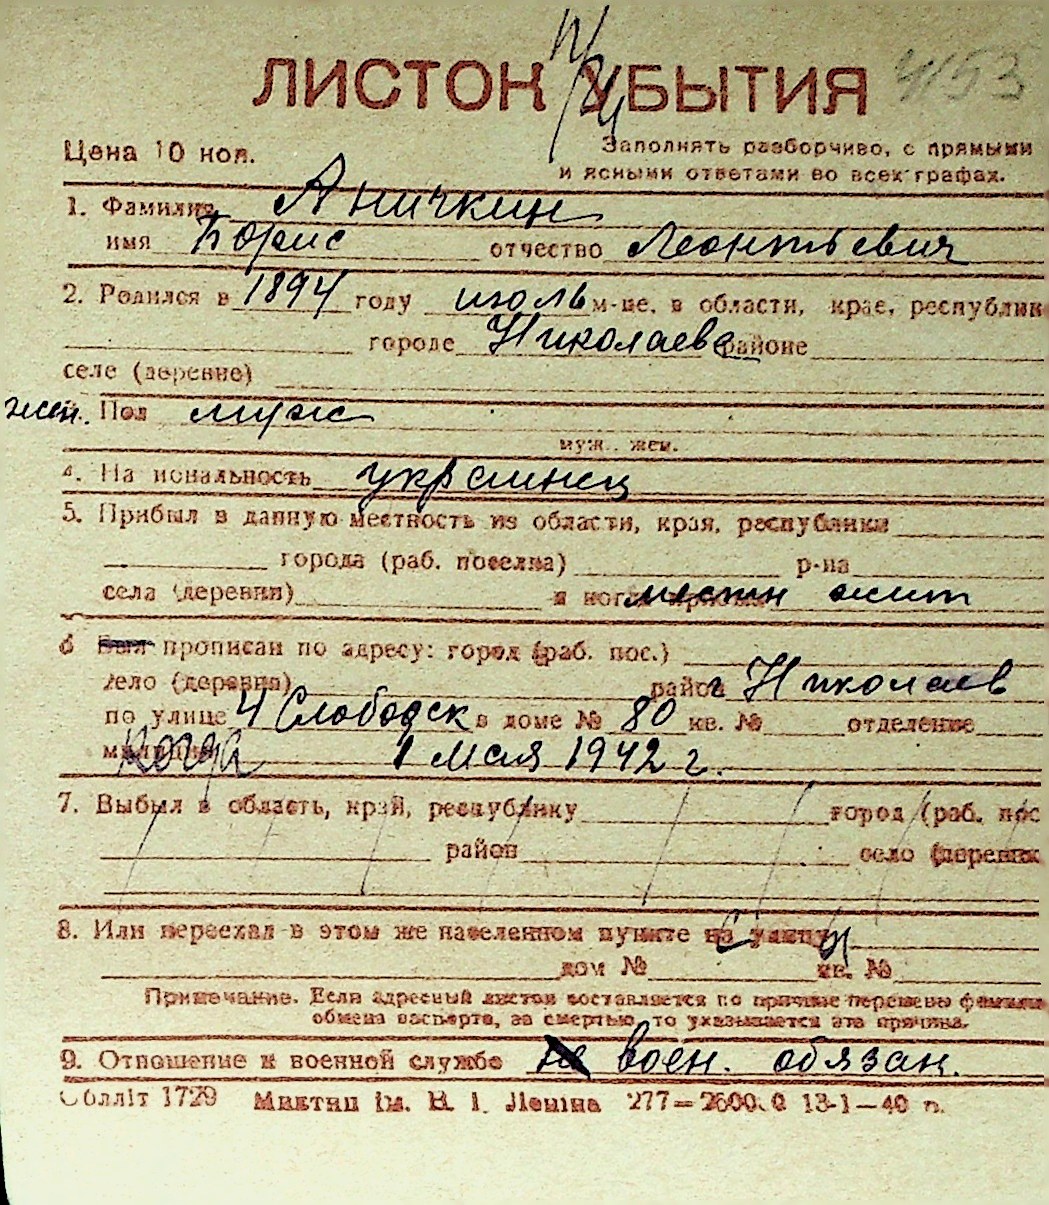 П/ц
ЛИСТОК УБЫТИЯ 4153
Цена 10 коп.
Заполнять разборчиво, с прямыми
и ясными ответами во всех графах.
1. Фамилия Аничкин
имя Борис отчество Леонтьевич
2. Родился в 1894 году июль м-це, в области, крае, республик
городе Николаеве районе
селе (деревне)
жен. Пол муж
муж., жен.
4. На иональность украинец
5. Прибыл в данную местность из области, края, республики
города (раб. поселка) р-на
села (деревни) и когда местн жит
6 Был прописан по адресу: город (раб. пос.)
село (деревня) район г Николаев
по улице 4 Слободск в доме № 80 кв. № отделение
когда 1 мая 1942 г.
7. Выбыл в область, край, республику город (раб. пос
район село (деревни
8. Или переехал в этом же населенном пункте на улицу
дом № кв. №
Примечание. Если адресный листок составляется по причине перемены фамилии
обмена паспорта, за смертью, то указывается эта причина.
9. Отношение к военной службе не воен. обязан.
Облліт 1729 Миктип ім. В. І. Леніна 277—2600.0 13-1—40 п.